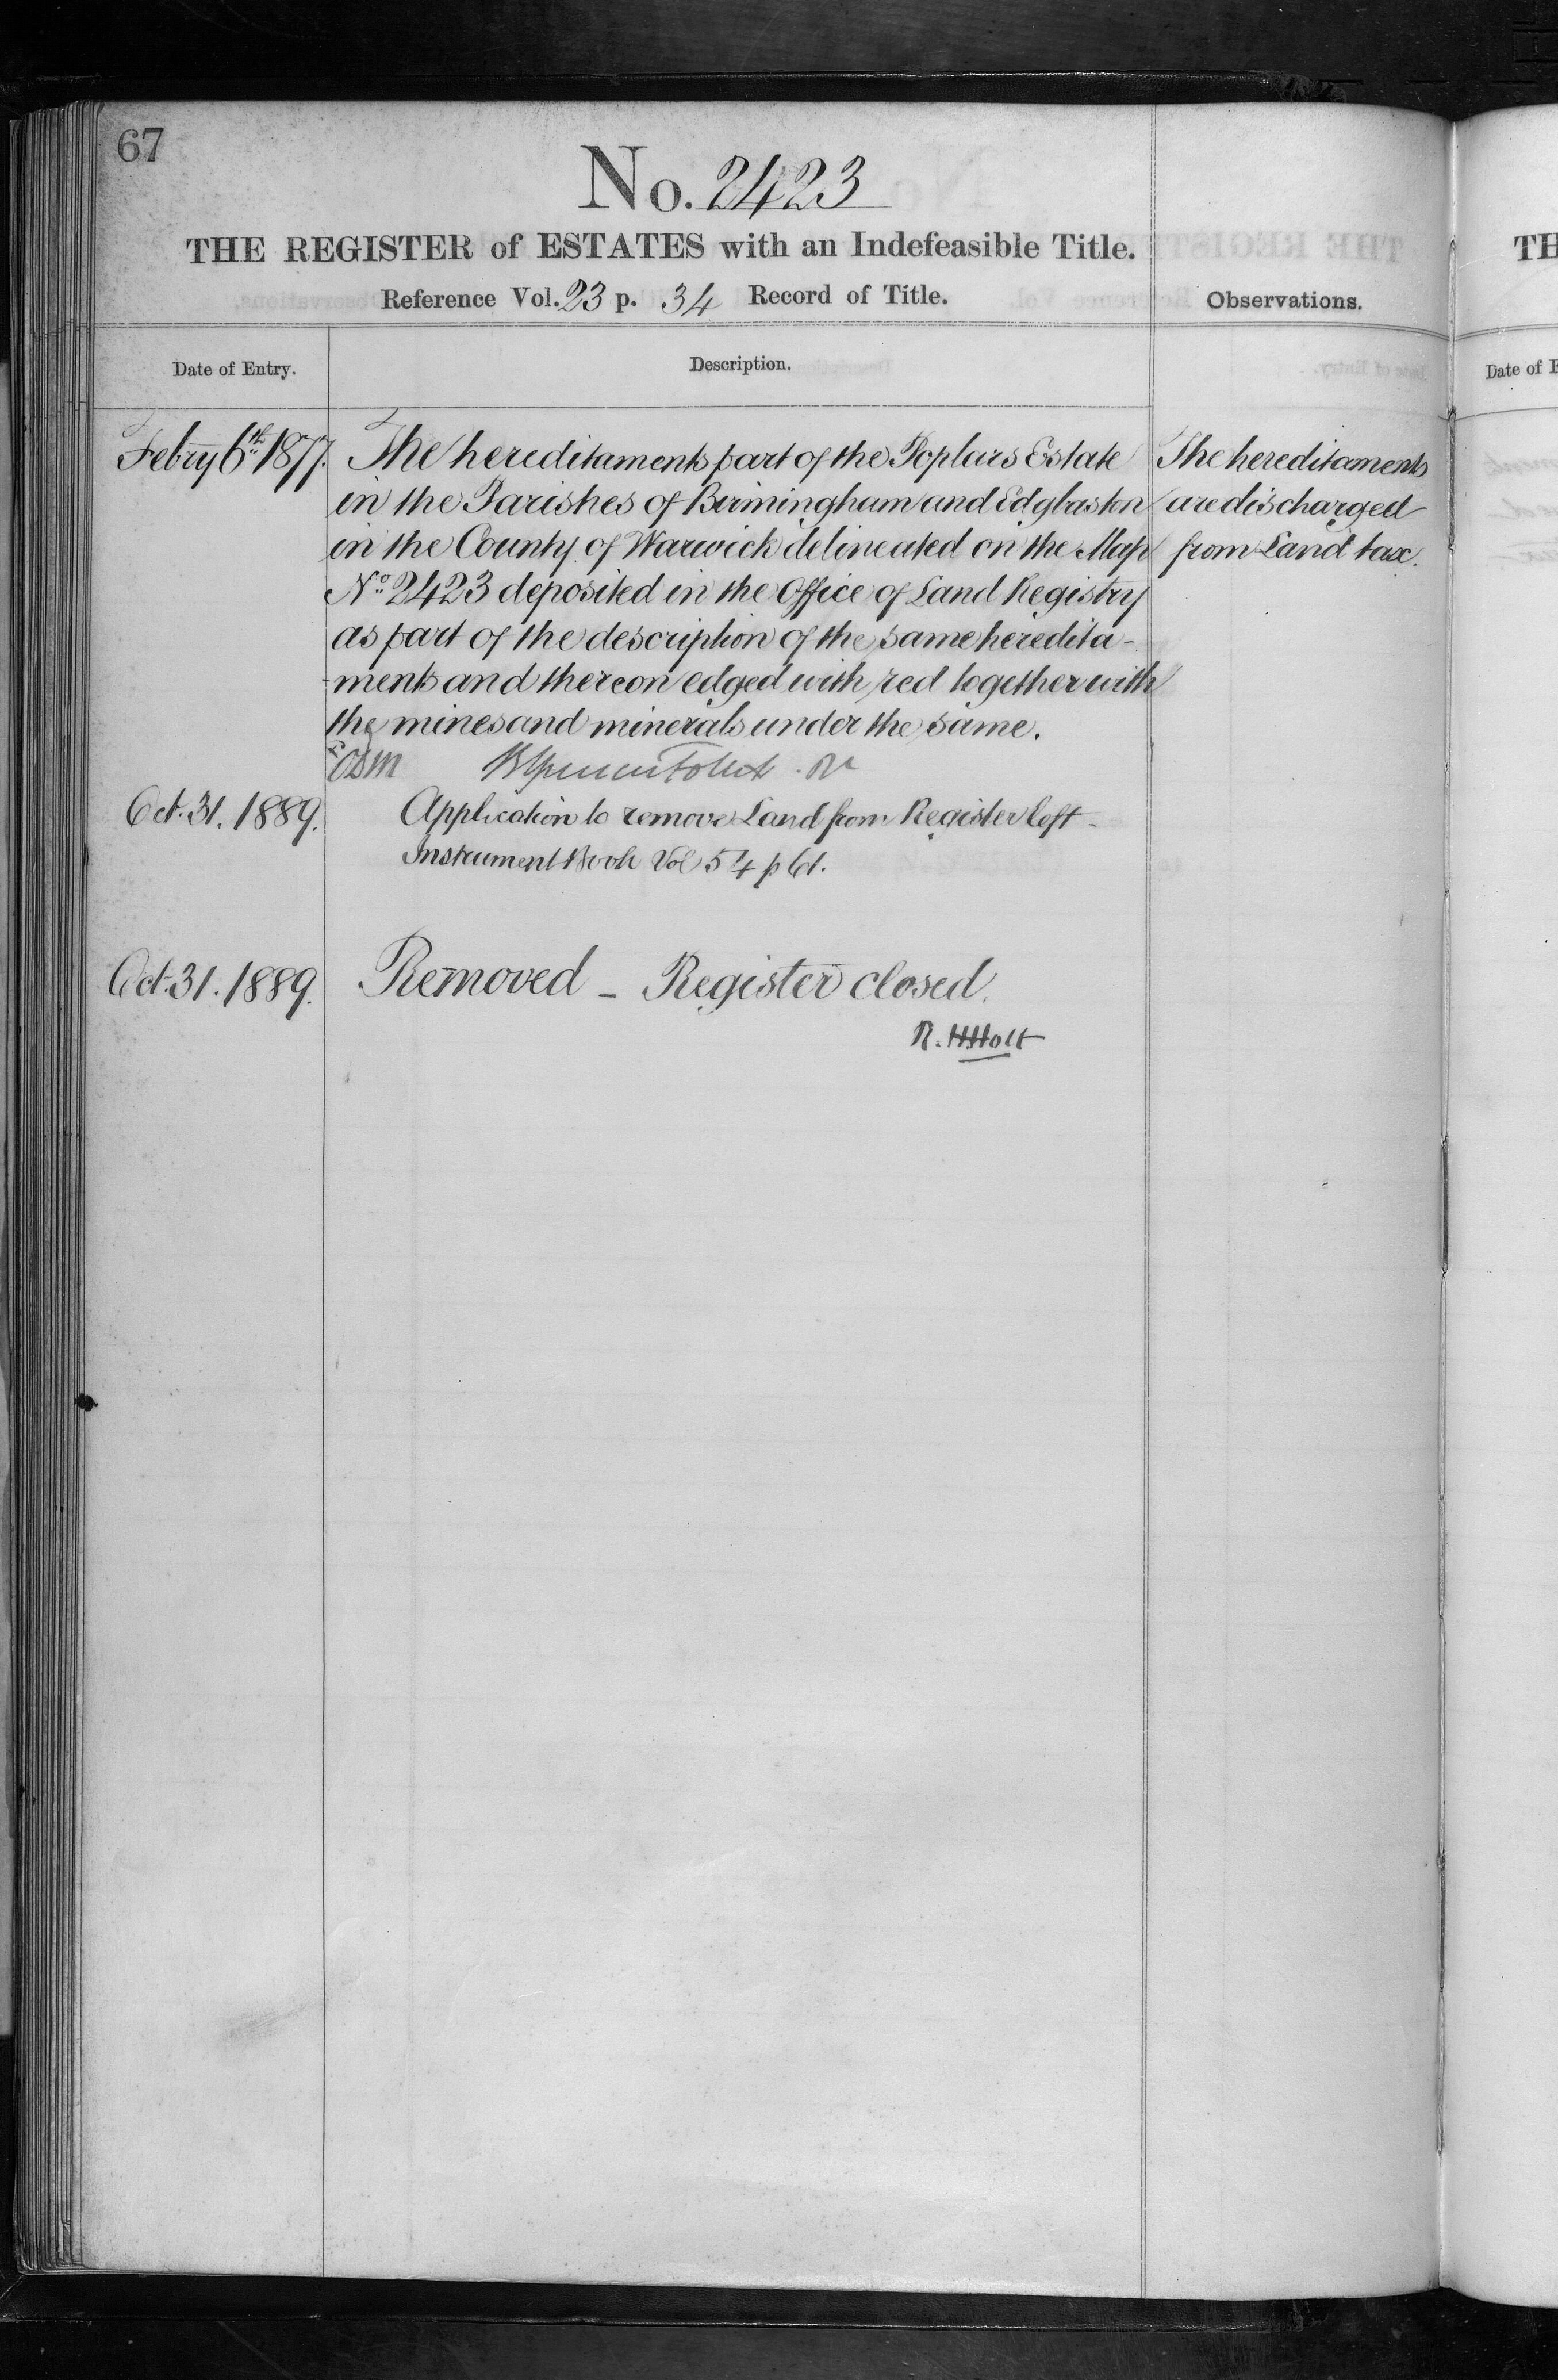 67
No. 2423
THE REGISTER of ESTATES with an Indefeasible Title.
Reference Vol. 23 p. 34 Record of Title.
Observations.
Date of Entry.
Description.
Febry 6th 1877.
The hereditaments part of the Poplars Estate
in the Parishes of Birmingham and Edgbaston
in the County of Warwick delineated on the Map
No. 2423 deposited in the Office of Land Registry
as part of the description of the same heredita-
-ments and thereon edged with red together with
the mines and minerals under the same.
The hereditaments
are discharged
from Land tax.
Oct. 31. 1889.
Application to remove Land from Register left -
Instrument Book Vol 54 p 61.
Oct. 31. 1889.
Removed - Register closed.
R. H Holt
TH
Date of E